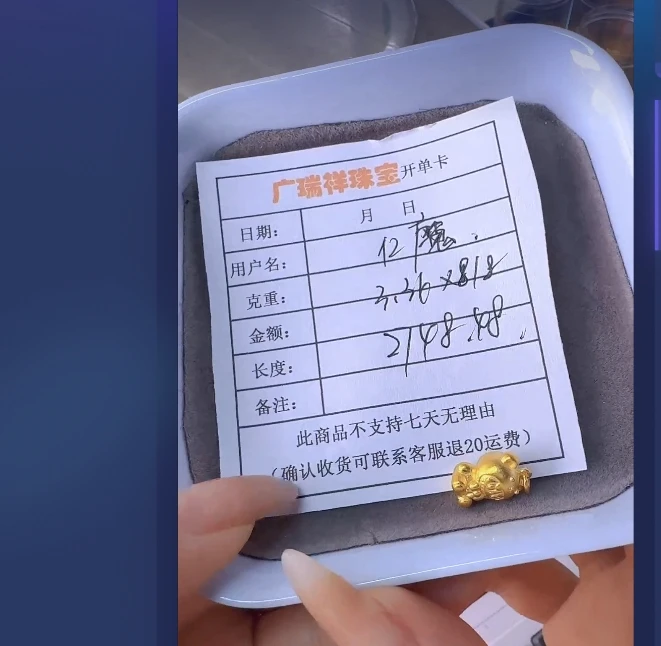 广瑞祥珠宝开单卡
日期： 月 日
用户名： 12
克重： 3.36 x 818
金额： 2748.48
长度：
备注：
此商品不支持七天无理由
（确认收货可联系客服退20运费）